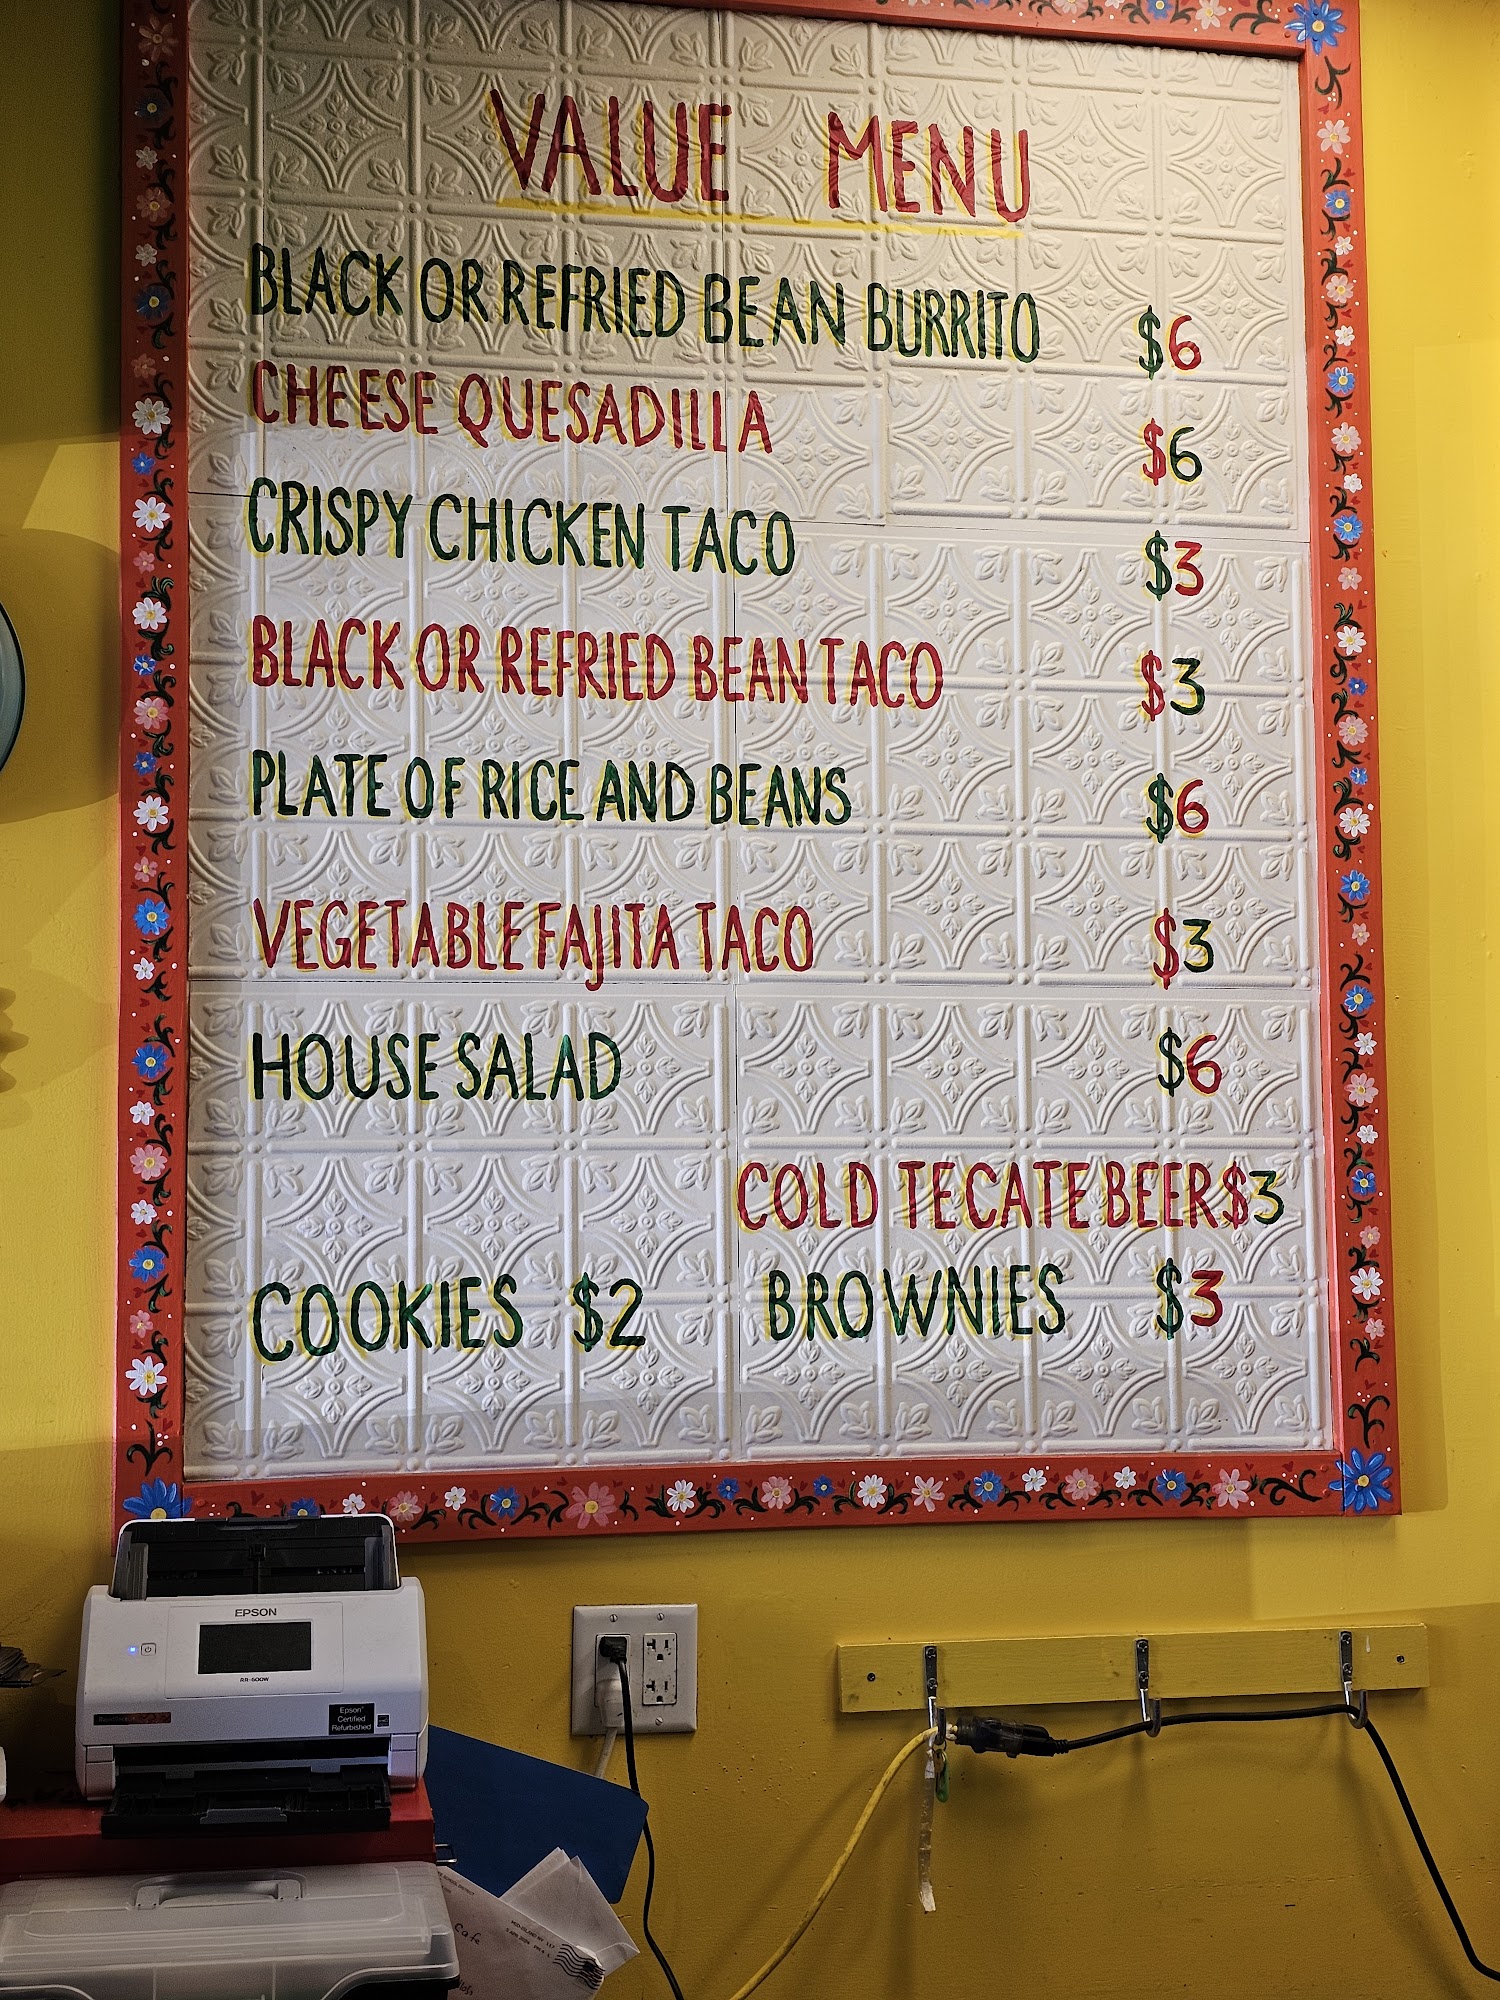 VALUE MENU
BLACK OR REFRIED BEAN BURRITO $6
CHEESE QUESADILLA $6
CRISPY CHICKEN TACO $3
BLACK OR REFRIED BEAN TACO $3
PLATE OF RICE AND BEANS $6
VEGETABLE FAJITA TACO $3
HOUSE SALAD $6
COLD TECATE BEER $3
COOKIES $2 BROWNIES $3
EPSON
RR-600W
Epson
Certified
Refurbished
SCHOOL DISTRICT
MID-ISLAND NY 117
Cafe